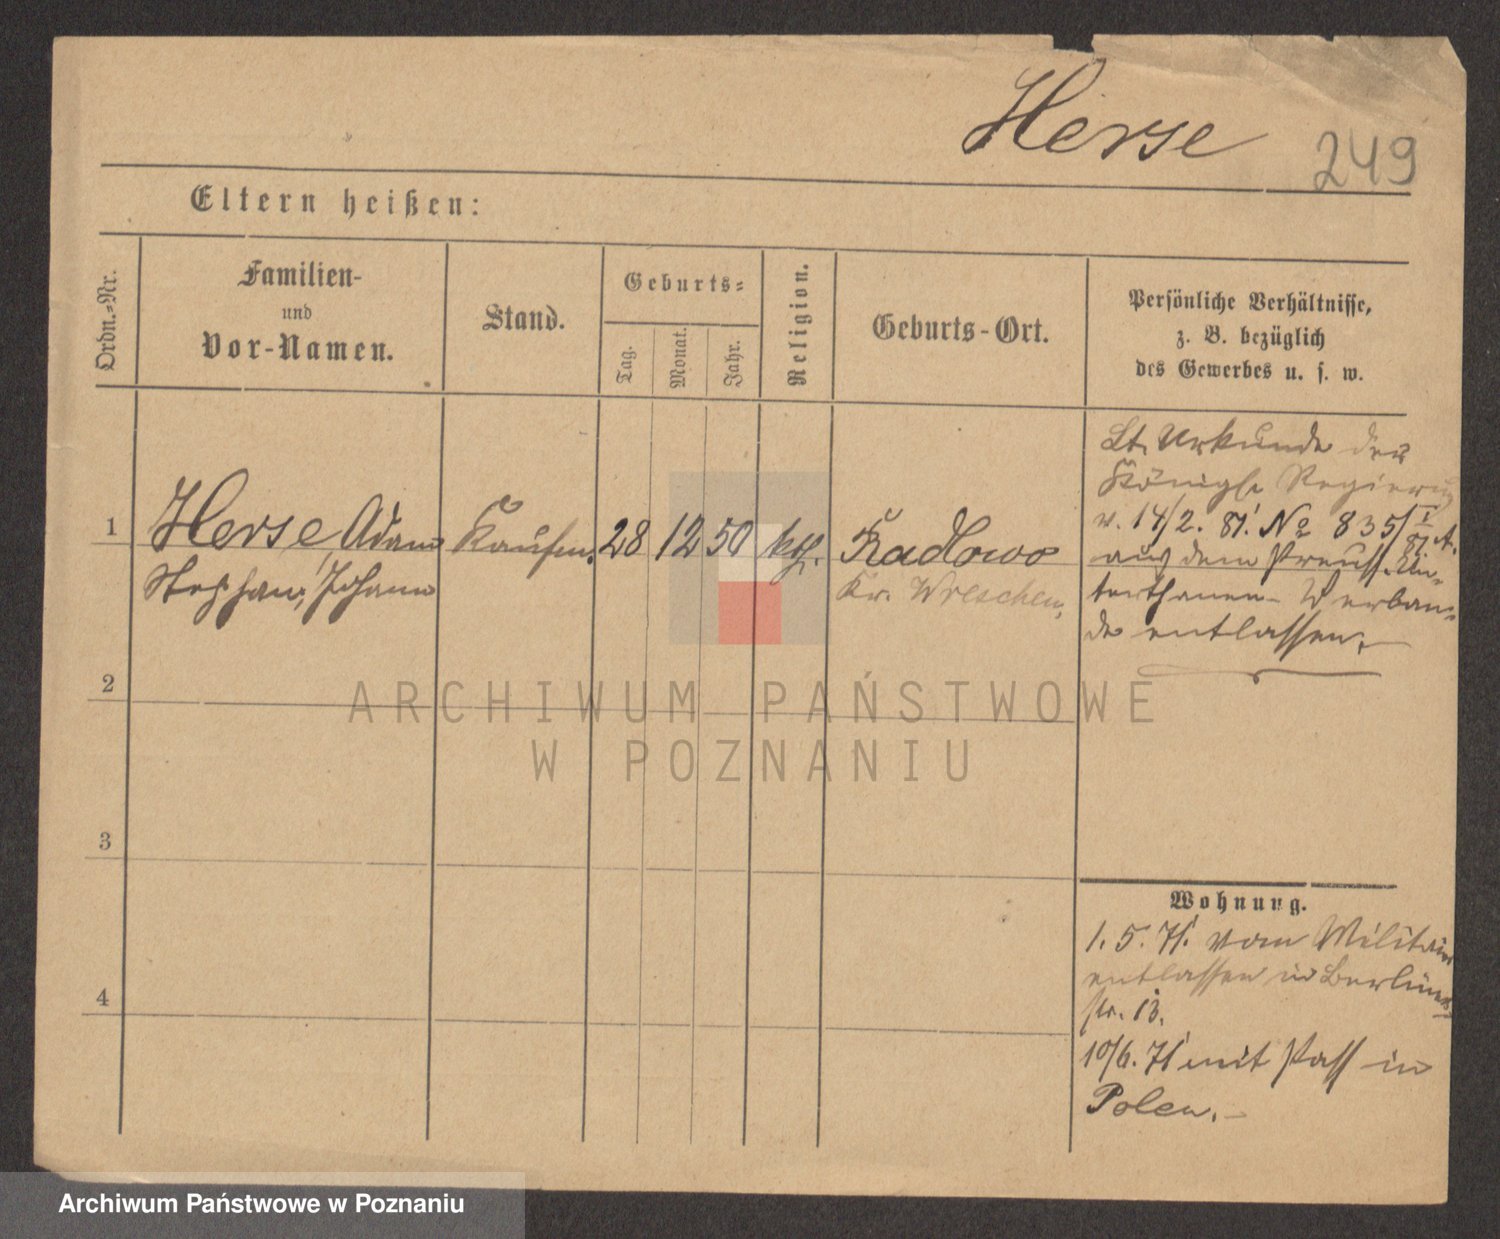 Herse
249
Eltern heißen:
Ordn.=Nr.
Familien-
und
Vor-Namen.
Stand.
Geburts=
Tag.
Monat.
Jahr.
Religion.
Geburts-Ort.
Persönliche Verhältnisse,
z. B. bezüglich
des Gewerbes u. s. w.
1
Herse, Adam
Stephan, Johann
Kaufm.
28
12
50
kth.
Radlowo
Kr. Wreschen,
Lt. Urkunde der
Königl. Regierung
v. 14/2. 81. No 835/81. I A.
aus dem Preuß. Un-
terthanen-Verban-
de entlassen.
2
3
4
Wohnung.
1. 5. 71. vom Militair
entlassen in Berliner-
str. 13.
10/6. 71 mit Paß in
Polen.
ARCHIWUM PAŃSTWOWE
W POZNANIU
Archiwum Państwowe w Poznaniu